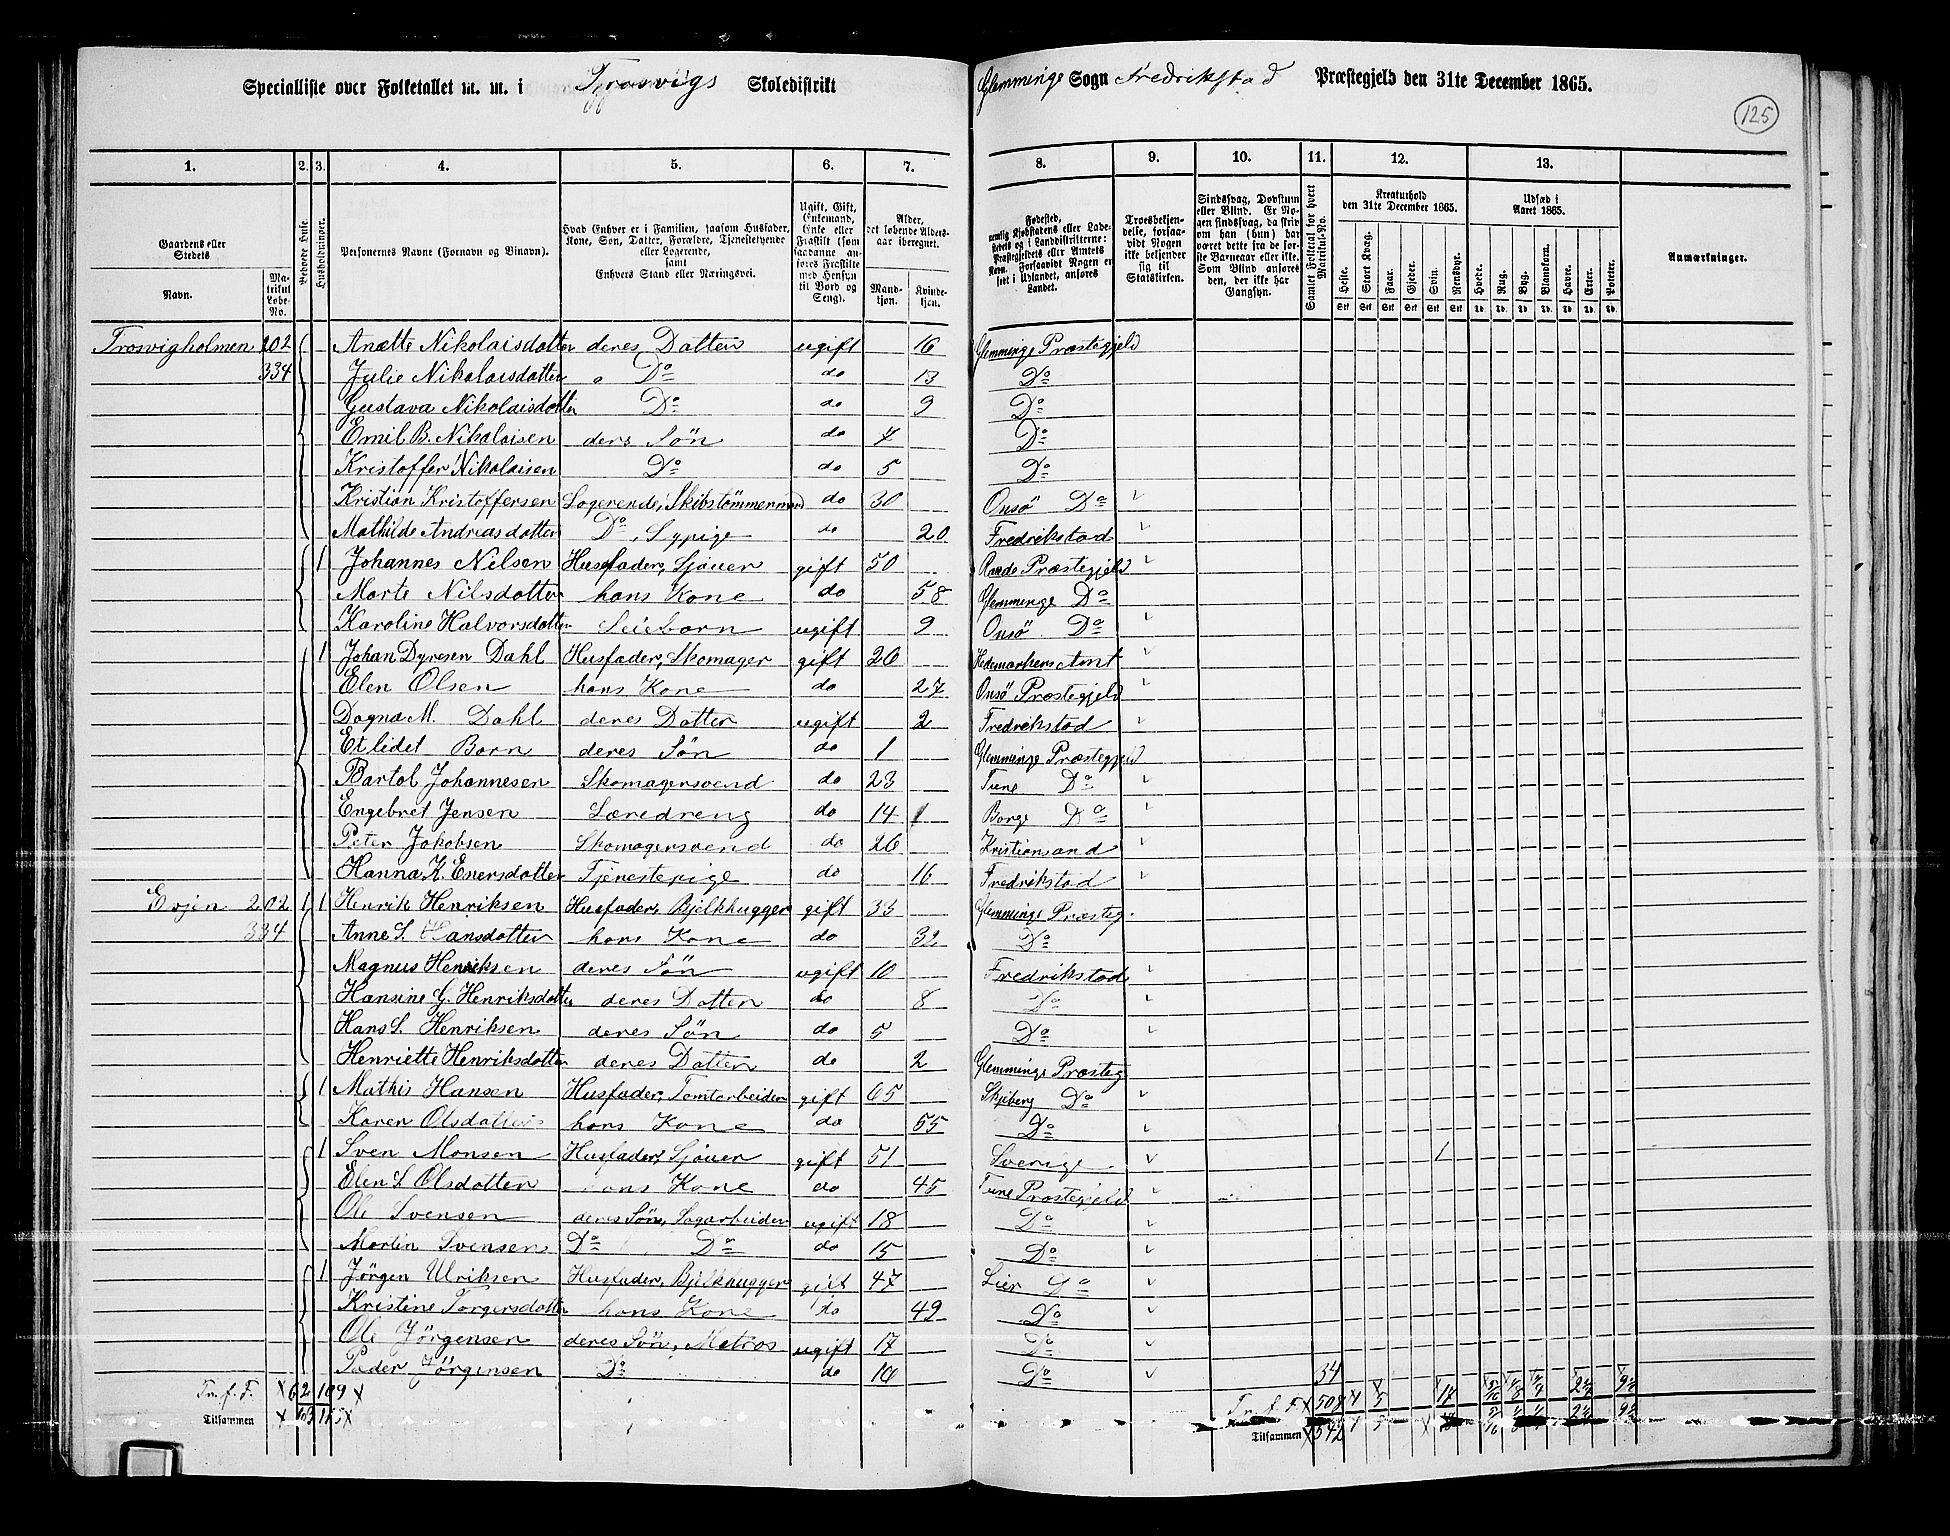 Specialliste over Folketallet m. m. i Trosvigs Skoledistrikt Glemminge Sogn Fredrikstad Præstegjeld den 31te December 1865.
125
1. 2. 3. 4. 5. 6. 7. 8. 9. 10. 11. 12. 13.
Gaardens eller Stedets
Navn. Matrikul Løbe-No.
Bebodde Huse.
Husholdninger.
Personernes Navne (Fornavn og Tilnavn).
Hvad Enhver er i Familien, saasom Husfader, Kone, Søn, Datter, Forældre, Tjenestetyende eller Logerende, samt Enhvers Stand eller Næringsvei.
Ugift, Gift, Enkemand, Enke eller Fraskilt (som saadanne anføres Fraskilte med Hensyn til Bord og Seng).
Alder, det løbende Alders-aar iberegnet.
Mandkjøn. Kvindekjøn.
Fødested,
Troesbekjendelse, forsaavidt Nogen ikke bekjender sig til Statskirken.
Sindssvag, Døvstum eller Blind.
Samlet Folketal for hvert Matrikul-No.
Kreaturhold den 31te December 1865.
Heste. Stort Kvæg. Faar. Gjeder. Svin. Rensdyr.
Udsæd i Aaret 1865.
Hvede. Rug. Byg. Blandkorn. Havre. Erter. Poteter.
Anmærkninger.
Trosvigholmen 202 Anætte Nikolaisdatter deres Datter ugift 16 Glemminge Præstegjeld
334 Julie Nikolaisdatter Do do 13 Do
Gustava Nikolaisdatter Do do 9 Do
Emil B. Nikolaisen deres Søn do 7 Do
Kristoffer Nikolaisen Do do 5 Do
Kristian Kristoffersen Logerende, Skibstömmermand do 30 Onsö Do
Mathilde Andreasdatter Do, Sypige do 20 Fredrikstad
1 Johannes Nilsen Husfader, Sjöuer gift 50 Raade Præstegjeld
Marte Nilsdatter hans Kone do 58 Glemminge Do
Karoline Halvorsdatter Leiebarn ugift 9 Onsö Do
1 Johan Dyresen Dahl Husfader, Skomager gift 26 Hedemarkens Amt
Elen Olsen hans Kone do 27 Onsö Præstegjeld
Dagna M. Dahl deres Datter ugift 2 Fredrikstad
Et lidet Barn deres Søn do 1 Glemminge Præstegjeld
Bartol Johannesen Skomagersvend do 23 Tune Do
Engebret Jensen Læredreng do 14 Borge Do
Peter Jakobsen Skomagersvend do 26 Kristiansand
Hanna K. Enersdatter Tjenestepige do 16 Fredrikstad
Evjen 202 1 1 Henrik Henriksen Husfader, Bjelkhugger gift 33 Glemminge Præsteg.
334 Anne S. Hansdatter hans Kone do 32 Do
Magnus Henriksen deres Søn ugift 10 Fredrikstad
Hansine G. Henriksdatter deres Datter do 8 Do
Hans S. Henriksen deres Søn do 5 Do
Henriette Henriksdatter deres Datter do 2 Glemminge Præsteg
1 Mathis Hansen Husfader, Tomtarbeider gift 65 Skjeberg Do
Karen Olsdatter hans Kone do 55 Do
1 Sven Monsen Husfader, Sjöuer gift 51 Sverige 1
Elen S. Olsdatter hans Kone do 45 Tune Præstegjeld
Ole Svensen deres Søn, Sagarbeider ugift 18 Do
Martin Svensen Do Do do 15 Do
1 Jörgen Ulriksen Husfader, Bjelkhugger gift 47 Lier Do
Kristine Torgersdatter hans Kone do 49 Do
Ole Jörgensen deres Søn, Matros ugift 17 Do
Peder Jörgensen Do do 10 Do 34
Tr. f. F. 62 109 Tr. f. F. 508
Tilsammen 63 Tilsammen 542